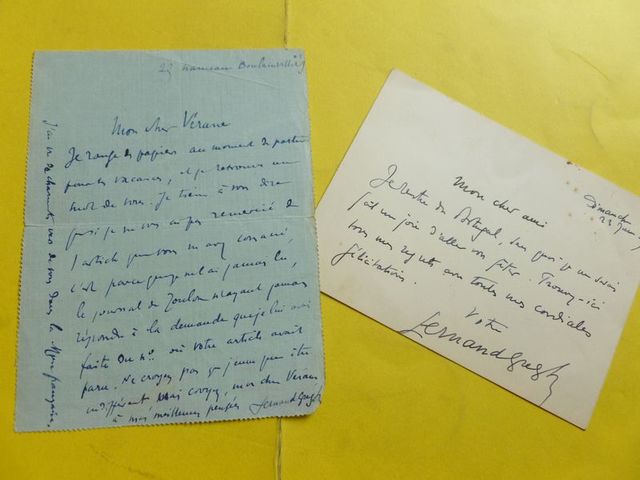 23 hameau Boulainvilliers
Mon cher Verane
Je range des papiers au moment de partir
pour les vacances, et je retrouve un
mot de vous. Je tiens à vous dire
que si je ne vous ai pas remercié de
l'article que vous m'avez consacré,
c'est parce que je ne l'ai jamais lu,
le journal de Toulon n'ayant jamais
répondu à la demande que je lui avais
faite du n° où votre article avait
paru. Ne croyez pas que j'eusse pu être
indifférent mais croyez, mon cher Verane
à mes meilleures pensées Fernand Gregh
J'ai lu de charmants vers de vous dans la Muse française.
Dimanche
23 juin
Mon cher ami
Je rentre du Portugal, sans quoi je me serais
fait une joie d'aller vous fêter. Trouvez ici
tous mes regrets avec toutes mes cordiales
félicitations.
Votre
Fernand Gregh